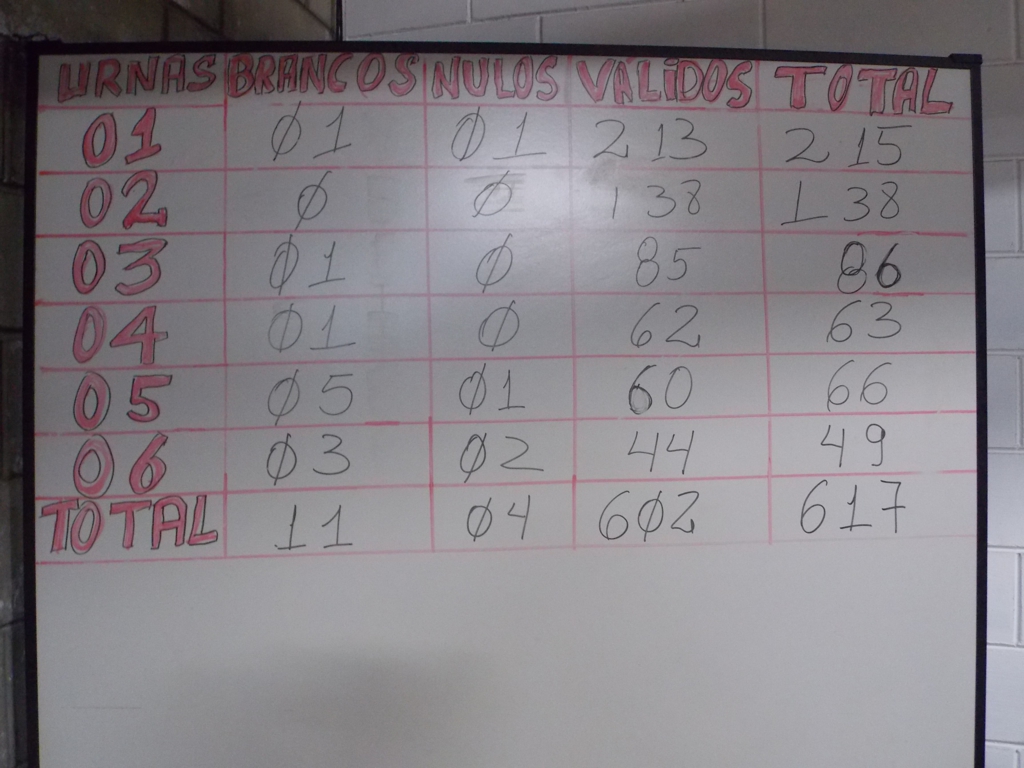 URNAS BRANCOS NULOS VÁLIDOS TOTAL
01 01 01 213 215
02 0 0 138 138
03 01 0 85 86
04 01 0 62 63
05 05 01 60 66
06 03 02 44 49
TOTAL 11 04 602 617